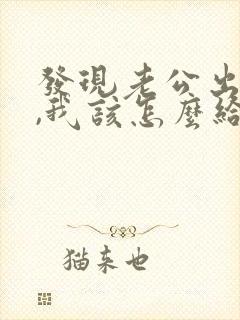 發現老公出
,我該怎麼給
猫来也